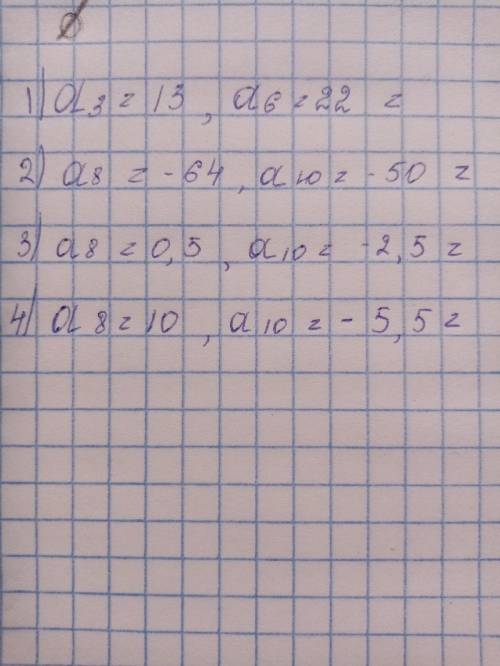 1) a3 = 13, a6 = 22 =
2) a8 = -64, a10 = -50 =
3) a8 = 0,5, a10 = -2,5 =
4) a8 = 10, a10 = -5,5 =